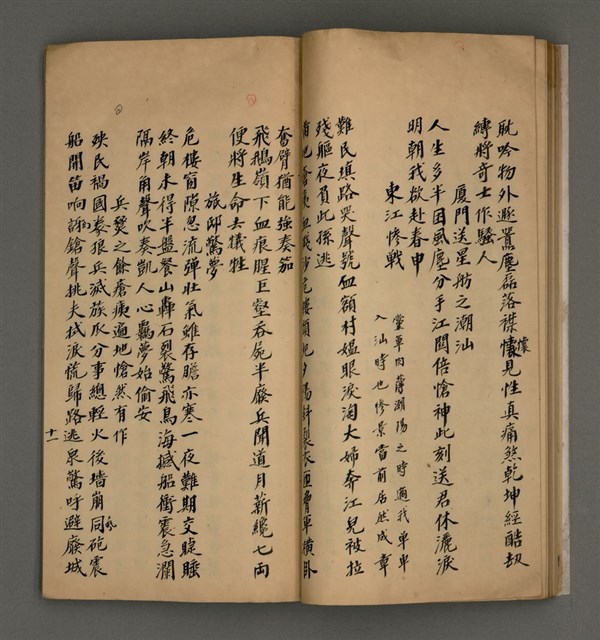 耽吟物外遯囂塵磊落襟懷見性真痛煞乾坤經酷劫
縛將奇士作騷人
厦門送星舫之潮汕
人生多半困風塵分手江關倍愴神此刻送君休灑淚
明朝我欲赴春申
東江慘戰
黨軍肉薄潮陽之時適我單車
入汕時也慘景當前居然成章
難民填路哭聲號血額村媼眼淚淘大婦奔江兒被拉
殘軀夜負此孫逃
奮臂猶能強奏笳
飛鵝嶺下血痕腥巨壑吞屍半廢兵開道月薪纔七両
便將生命去犧牲
旅邸驚夢
危樓窗隙忽流彈壯氣雖存膽亦寒一夜難期交睫睡
終朝未得半盤餐山轟石裂驚飛鳥海撼船衝震急瀾
隔岸角聲吹奏凱人心驫夢始偷安
兵燹之餘瘡痍遍地愴然有作
殃民禍國豢狼兵滅族瓜分事總輕火後墻崩同砲震
船開笛响誤鎗聲挑夫拭淚慌歸路逃泉驚呼避廢城
十一